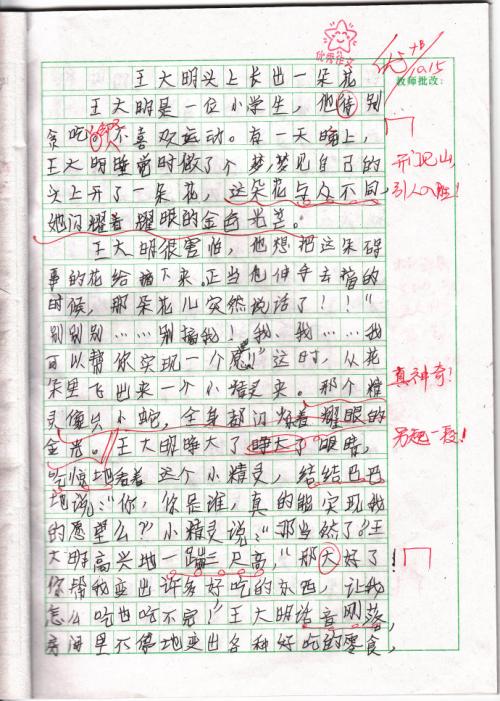 优秀作文
优+B
10.15
教师批改：
王大明头上长出一朵花
王大明是一位小学生，他特别
贪吃，不喜欢运动。有一天晚上，
王大明睡觉时做了个梦，梦见自己的
头上开了一朵花，这朵花与众不同，
她闪耀着耀眼的金色光芒。
开门见山，
引人入胜！
王大明很害怕，他想把这朵碍
事的花给摘下来。正当他伸手去摘的
时候，那朵花儿突然说话了！！“
别别别……别摘我！我、我……我
可以帮你实现一个愿！”这时，从花
朵里飞出来一个小精灵来。那个精
真神奇！
灵像只小蛇，全身都闪烁着耀眼的
金光。王大明睁大了睁大了眼睛，
另起一段！
吃惊地看着这个小精灵，结结巴巴
地说：“你，你是谁，真的能实现我
的愿望么？”小精灵说：“那当然了？王
大明高兴地一蹦三尺高，“那大好了！
你帮我变出许多好吃的东西，让我
怎么吃也吃不完！”王大明话音刚落，
房间里不停地变出各种好吃的零食，